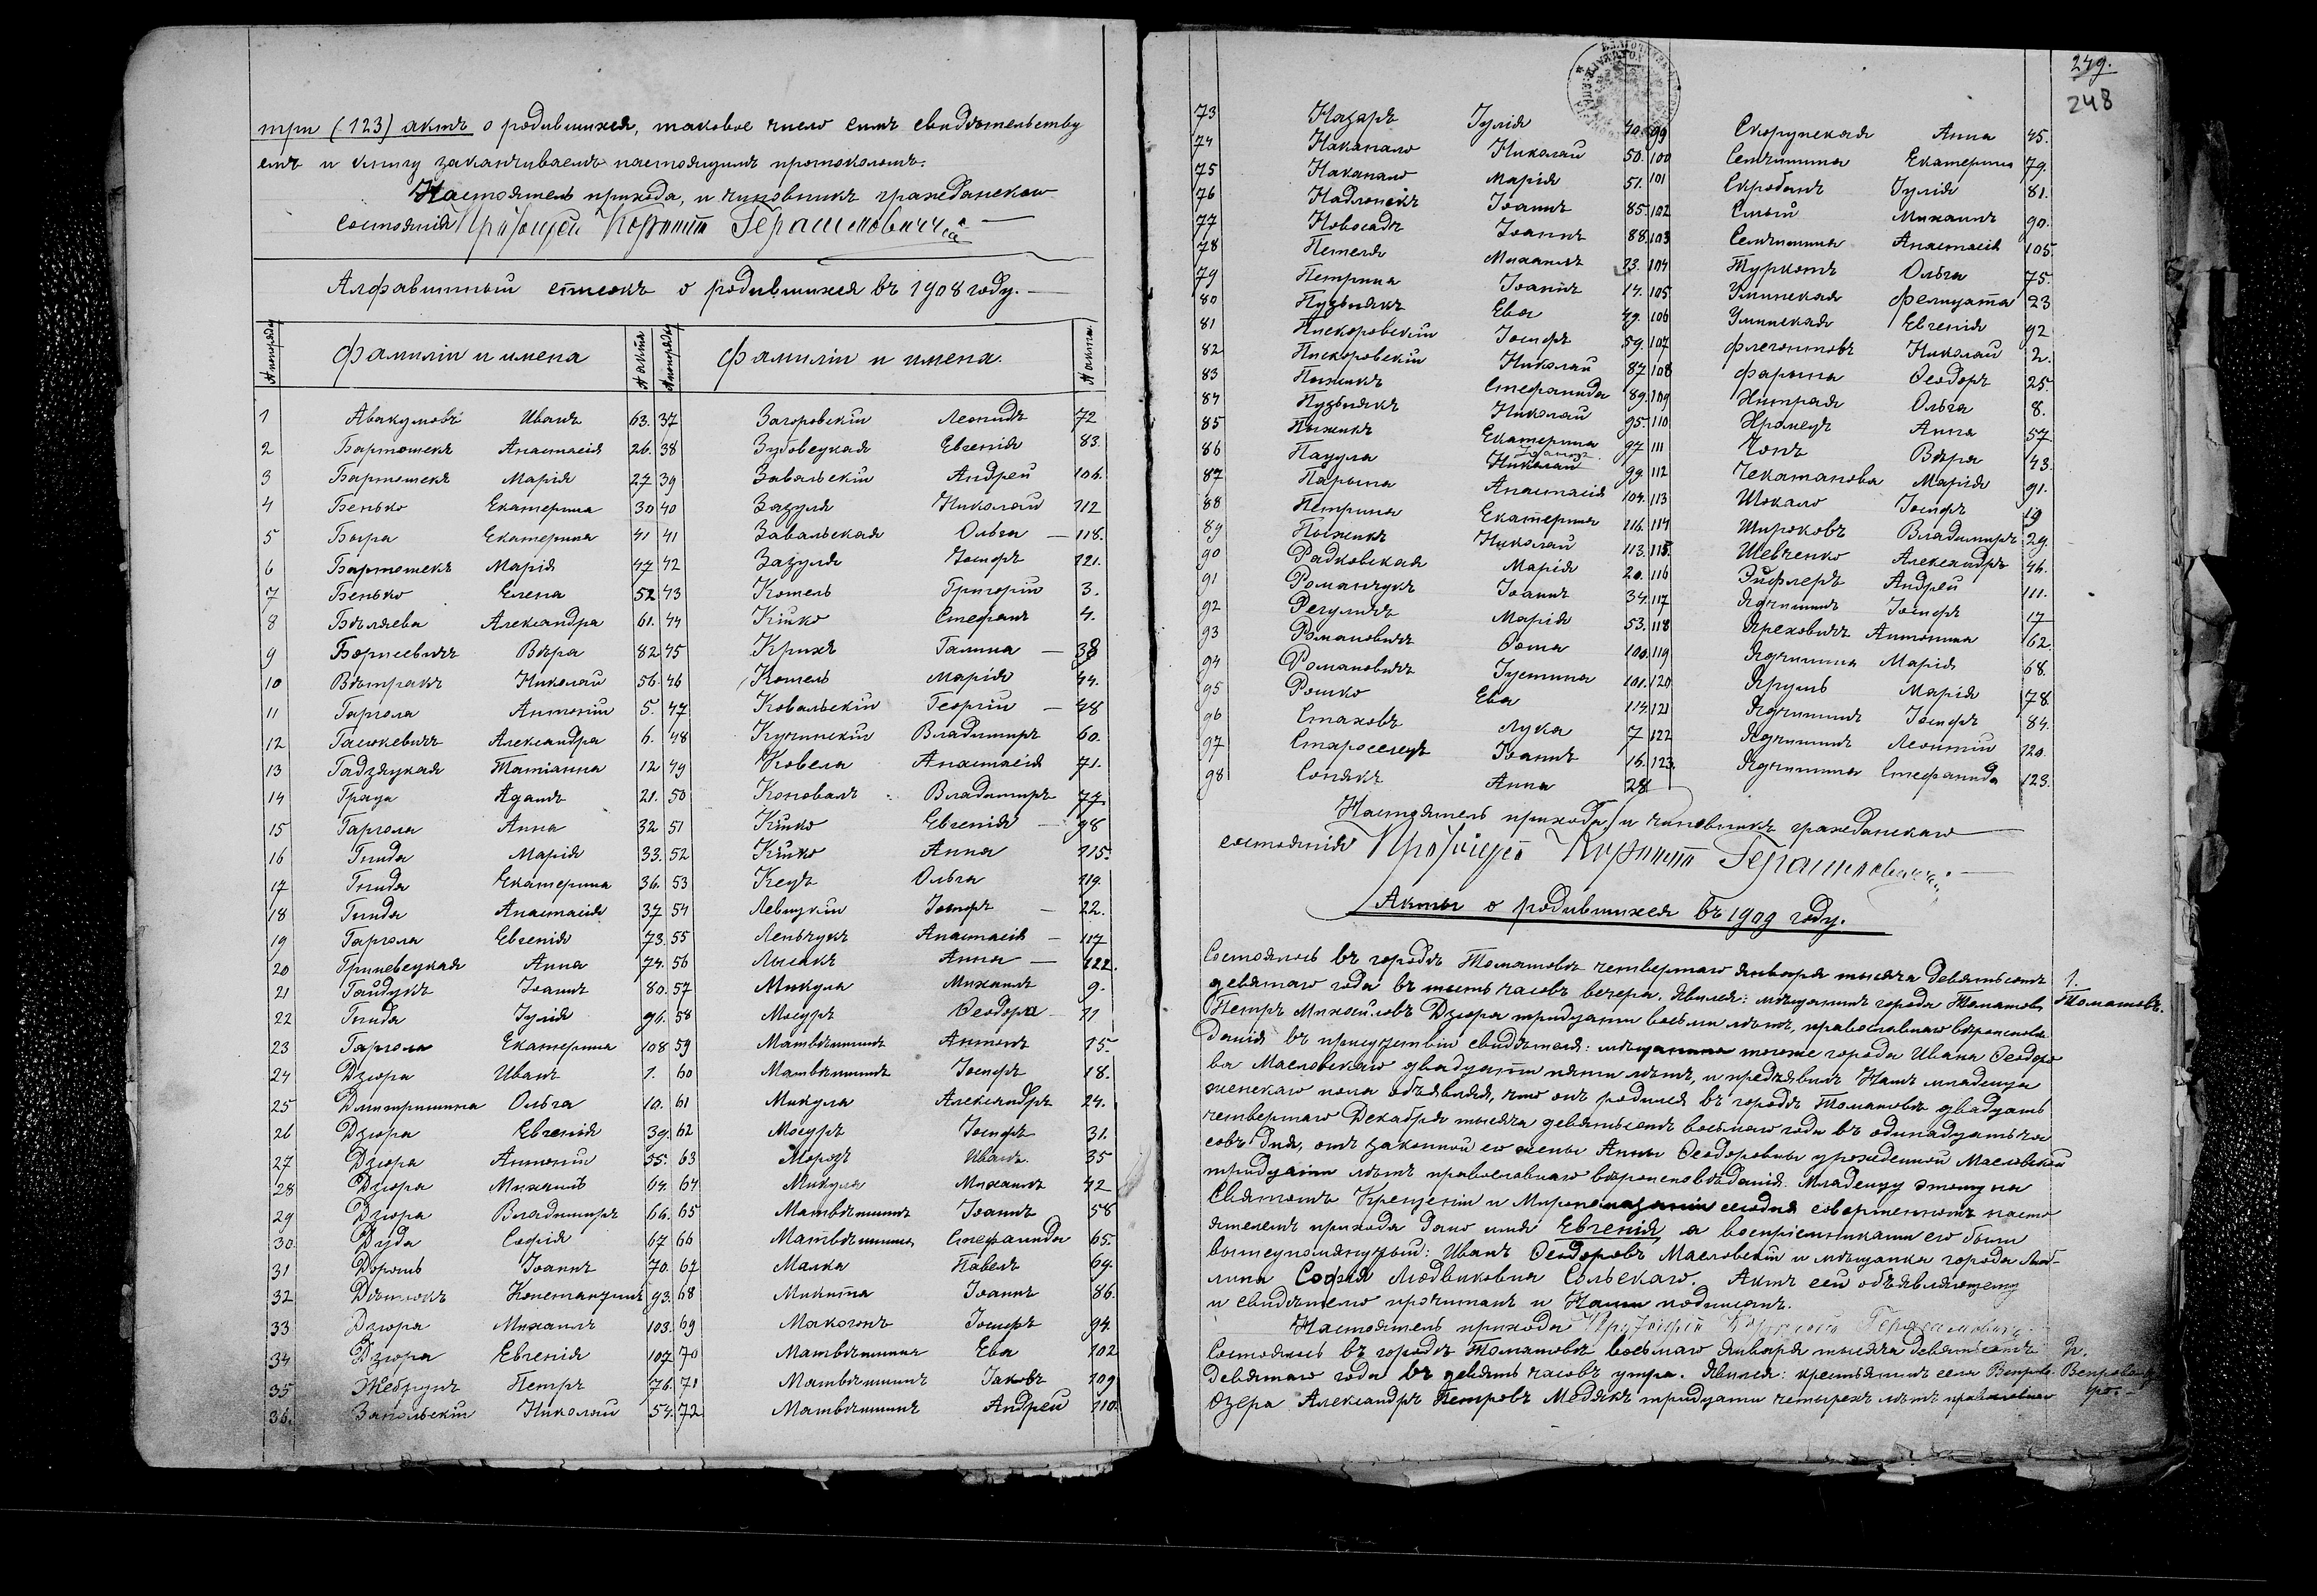 три (123) актъ о родившихся, таковое число симъ свидѣтельству
емъ и книгу заканчиваемъ настоящимъ протоколомъ.
Настоятель прихода, и чиновникъ гражданскаго
состоянія Протоіерей
Алфавитный списокъ о родившихся въ 1908 году.
№ порядка Фамиліи и имена № акта № порядка Фамиліи и имена. № акта
1 Авакумовъ Иванъ 63. 37 Загоровскій Леонидъ 72
2 Бартошекъ Анастасія 26. 38 Зубовецкая Евгенія 83.
3 Бартошекъ Марія 27 39 Завальскій Андрей 106.
4 Бенько Екатерина 30 40 Зазуля Николай 112
5 Быра Екатерина 41 41 Завальская Ольга 118.
6 Бартошекъ Марія 47 42 Зазуля Іосифъ 121.
7 Бенько Елена 52 43 Котель Григорій 3.
8 Бѣляева Александра 61. 44 Кійко Стефанъ 4.
9 Борисевичъ Вѣра 82 45 Крихъ Галина 38
10 Вѣтракъ Николай 56. 46 Котель Марія 44.
11 Гаргола Антоній 5. 47 Ковальскій Георгій 48
12 Гасюкевичъ Александра 6. 48 Кучинскій Владиміръ 60.
13 Гадзяцкая Татіанна 12 49 Ковела Анастасія 71.
14 Граца Адамъ 21. 50 Коновалъ Владиміръ 77
15 Гаргола Анна 32 51 Кійко Евгенія 98
16 Гнида Марія 33. 52 Кійко Анна 115.
17 Гнида Екатерина 36. 53 Кецъ Ольга 119.
18 Гнида Анастасія 37 54 Левицкій Іосифъ 22.
19 Гаргола Евгенія 73. 55 Леньчукъ Анастасія 117
20 Гриневецкая Анна 74. 56 Лысакъ Анна 122.
21 Гайдукъ Іоаннъ 80. 57 Микула Михаилъ 9.
22 Гнида Іулія 96. 58 Мосуръ Ѳеодора 11
23 Гаргола Екатерина 108 59 Матвѣишинъ Антонъ 15.
24 Дзюра Иванъ 1. 60 Матвѣишинъ Іосифъ 18.
25 Дмитришина Ольга 10. 61 Микула Александръ 24.
26 Дзюра Евгенія 39. 62 Мосуръ Іосифъ 31.
27 Дзюра Антоній 55. 63 Морозъ Иванъ 35
28 Дзюра Михаилъ 64. 64 Микула Михаилъ 42
29 Дзюра Владиміръ 66. 65 Матвѣишинъ Іоаннъ 58
30 Дуда Софія 67 66 Матвѣишина Стефанида 65.
31 Дорошъ Іоаннъ 70. 67 Малка Павелъ 69.
32 Константинъ 93. 68 Микитта Іоаннъ 86.
33 Дзюра Михаилъ 103. 69 Макогонъ Іосифъ 94.
34 Дзюра Евгенія 107 70 Матвѣишина Ева 102
35 Жебрунъ Петръ 76. 71 Матвѣишинъ Іаковъ 109
36. Запольскій Николай 54. 72 Матвѣишинъ Андрей 110.
249.
248
73 Назаръ Іулія 40. 99 Скорупская Анна 45.
74 Накапало Николай 50. 100 Семчишина Екатерина 79.
75 Накапало Марія 51. 101 Скробанъ Іулія 81.
76 Іоаннъ 85. 102 Михаилъ 90.
77 Новосадъ Іоаннъ 88. 103 Семчишина Анастасія 105.
78 Петеля Михаилъ 13. 104 Туркотъ Ольга 75.
79 Петрина Іоаннъ 14. 105 Уминская Фелицата 23
80 Пузнякъ Ева 49. 106 Уминская Евгенія 92
81 Пискоровскій Іосифъ 59. 107 Флегонтовъ Николай 2.
82 Пискоровскій Николай 87. 108 Фарына Ѳеодоръ 25.
83 Пыжикъ Стефанида 89. 109 Ольга 8.
84 Пузнякъ Николай 95. 110 Анна 57
85 Пыжикъ Екатерина 97 111 Чопъ Вѣра 43.
86 Пацула Іоаннъ Николай 99. 112 Чекаманова Марія 91.
87 Парына Анастасія 104. 113 Шокало Іосифъ 19
88 Петрина Екатерина 116. 114 Широковъ Владиміръ 29.
89 Пыжикъ Николай 113. 115. Шевченко Александръ 46.
90 Радковская Марія 20. 116 Эйфлеръ Андрей 111.
91 Романчукъ Іоаннъ 34. 117 Ядчишинъ Іосифъ 17
92 Марія 53. 118 Яреховичъ Антонина 62.
93 Романовичъ Ѳома 100. 119 Ядчишина Марія 68.
94 Романовичъ Іустина 101. 120 Яруль Марія 78.
95 Рошко Ева 114. 121 Ядчишинъ Іосифъ 84.
96 Стаховъ Лука 7 122 Ядчишинъ Леонтій 120.
97 Староселецъ Іоаннъ 16. 123. Ядчишина Стефанида 123.
98 Сонякъ Анна 28
Настоятель прихода, и чиновникъ гражданскаго
состоянія Протоіерей
Акты о родившихся въ 1909 году.
1.
Томашовъ.
Состоялось въ городѣ Томашовѣ четвертаго Января тысяча девятьсотъ
девятаго года въ шесть часовъ вечера. Явился: мѣщанинъ города Томашова
Петръ Михайловъ Дзюра тридцати восьми лѣтъ, православнаго вѣроисповѣ
данія въ присутствіи свидѣтеля: мѣщанина тогоже города Ивана Ѳеодоро
ва Масловскаго двадцати пяти лѣтъ, и предъявилъ Намъ младенца
женскаго пола объявляя, что онъ родился въ городѣ Томашовѣ двадцать
четвертаго Декабря тысяча девятьсотъ восьмаго года въ одинадцать ча
совъ дня, отъ законной его жены Анны Ѳеодоровны урожденной Масловской
тридцати лѣтъ православнаго вѣроисповѣданія. Младенцу этому на
Святомъ Крещеніи и Миропомазаніи сегодня совершенномъ насто
ятелемъ прихода дано имя Евгенія, а воспріемниками его были
вышеупомянутый: Иванъ Ѳеодоровъ Масловскій и мѣщанка города Люб-
лина Софія Людвиковна Сольскаго. Актъ сей объявляющему
и свидѣтелю прочитанъ и Нами подписанъ.
Настоятель прихода Протоіерей
2.
Состоялось въ городѣ Томашовѣ восьмаго Января тысяча девятьсотъ
девятаго года въ девять часовъ утра. Явился: крестьянинъ села Вепрово-
озера Александръ Петровъ Медякъ тридцати четырехъ лѣтъ православнаго